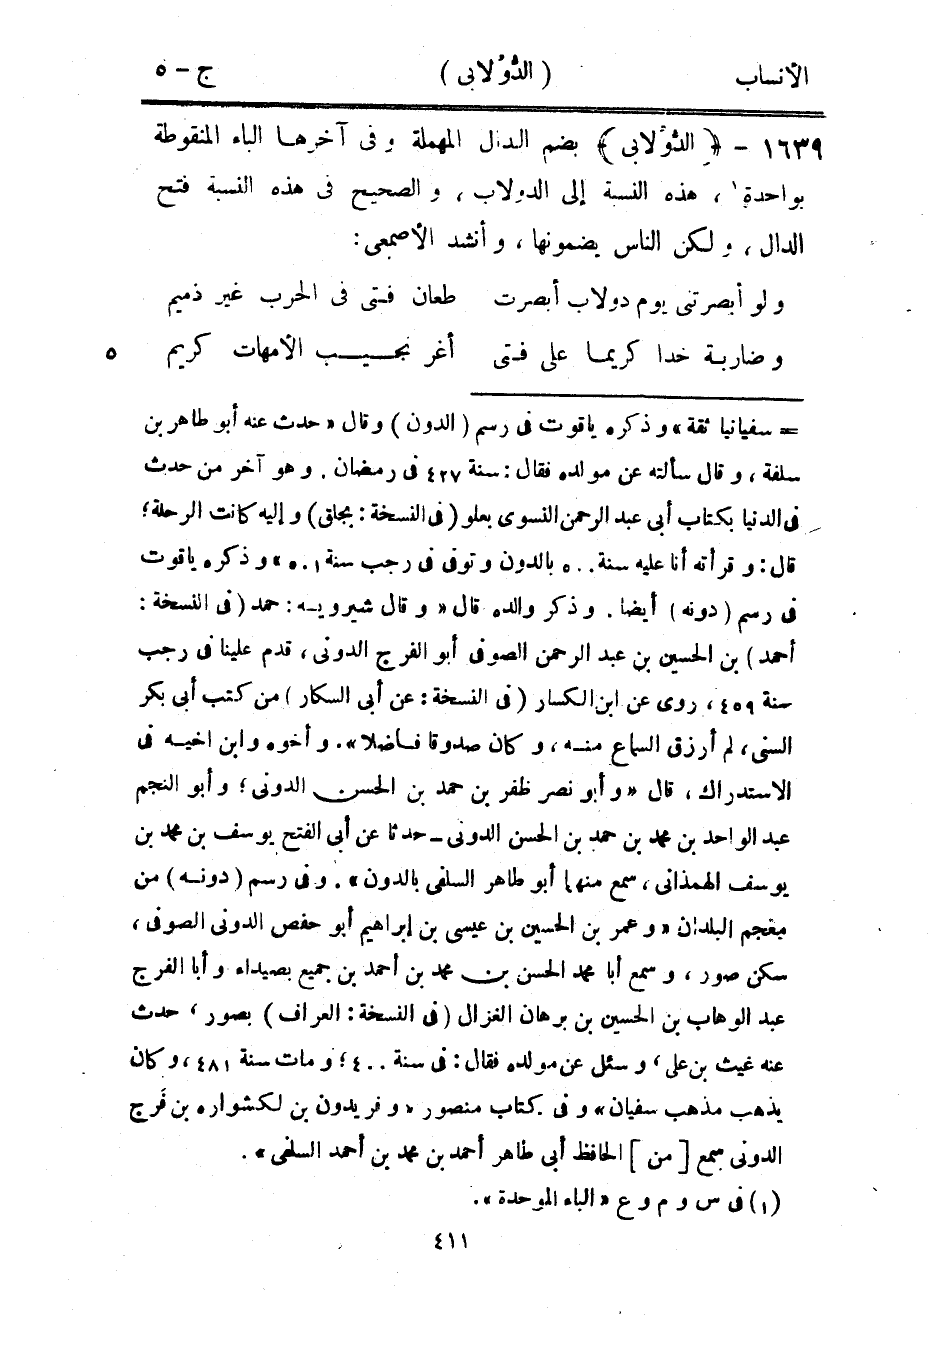 الأنساب ( الدُّوْلابى ) ج – ٥
١٦٣٩ – ﴿ الدُّوْلابى ﴾ بضم الدال المهملة و فى آخرها الباء المنقوطة
بواحدة١ ، هذه النسبة إلى الدولاب ، و الصحيح فى هذه النسبة فتح
الدال ، و لكن الناس يضمونها ، و أنشد الأصمعى :
و لو أبصرتنى يوم دولاب أبصرت طعان فتى فى الحرب غير ذميم
و ضاربة خدا كريما على فتى أغر نجيب الأمهات كريم ٥
= سفيانيا ثقة » و ذكره ياقوت فى رسم ( الدون ) وقال « حدث عنه أبو طاهر بن
سلفة ، و قال سألته عن مولده فقال : سنة ٤٢٧ فى رمضان . و هو آخر من حدث
فى الدنيا بكتاب أبى عبد الرحمن النسوى بعلو ( فى النسخة : بجلق ) و إليه كانت الرحلة ؛
قال : و قرأته أنا عليه سنة ٥٠٠ بالدون و توفى فى رجب سنة ٥٠١ » و ذكره ياقوت
فى رسم ( دونه ) أيضا . و ذكر والده قال « و قال شيرويه : حمد ( فى النسخة :
أحمد ) بن الحسين بن عبد الرحمن الصوفى أبو الفرج الدونى ، قدم علينا فى رجب
سنة ٤٥٩ ، روى عن ابن الكسار ( فى النسخة : عن أبى السكار ) من كتب أبى بكر
السنى ، لم أرزق السماع منه ، و كان صدوقا فاضلا » . و أخوه وابن اخيه فى
الاستدراك ، قال « و أبو نصر ظفر بن حمد بن الحسن الدونى ؛ و أبو النجم
عبد الواحد بن محمد بن حمد بن الحسن الدونى – حدثا عن أبى الفتح يوسف بن محمد بن
يوسف الهمذانى ، سمع منهما أبو طاهر السلفى بالدون » . و فى رسم ( دونه ) من
معجم البلدان « و عمر بن الحسين بن عيسى بن إبراهيم أبو حفص الدونى الصوفى ،
سكن صور ، و سمع أبا محمد الحسن بن محمد بن أحمد بن جميع بصيداء و أبا الفرج
عبد الوهاب بن الحسين بن برهان الغزال ( فى النسخة : العراف ) بصور ، حدث
عنه غيث بن على ، و سئل عن مولده فقال : فى سنة ٤٠٠ ؛ و مات سنة ٤٨١ ، و كان
يذهب مذهب سفيان » و فى كتاب منصور « و فريدون بن لكشواره بن فرج
الدونى سمع [ من ] الحافظ أبى طاهر أحمد بن محمد بن أحمد السلفى » .
(١) فى س و م و ع « الباء الموحدة » .
٤١١